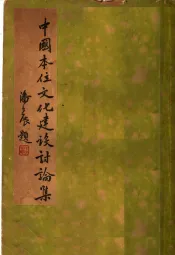 中國本位文化建設討論集
潘公展題